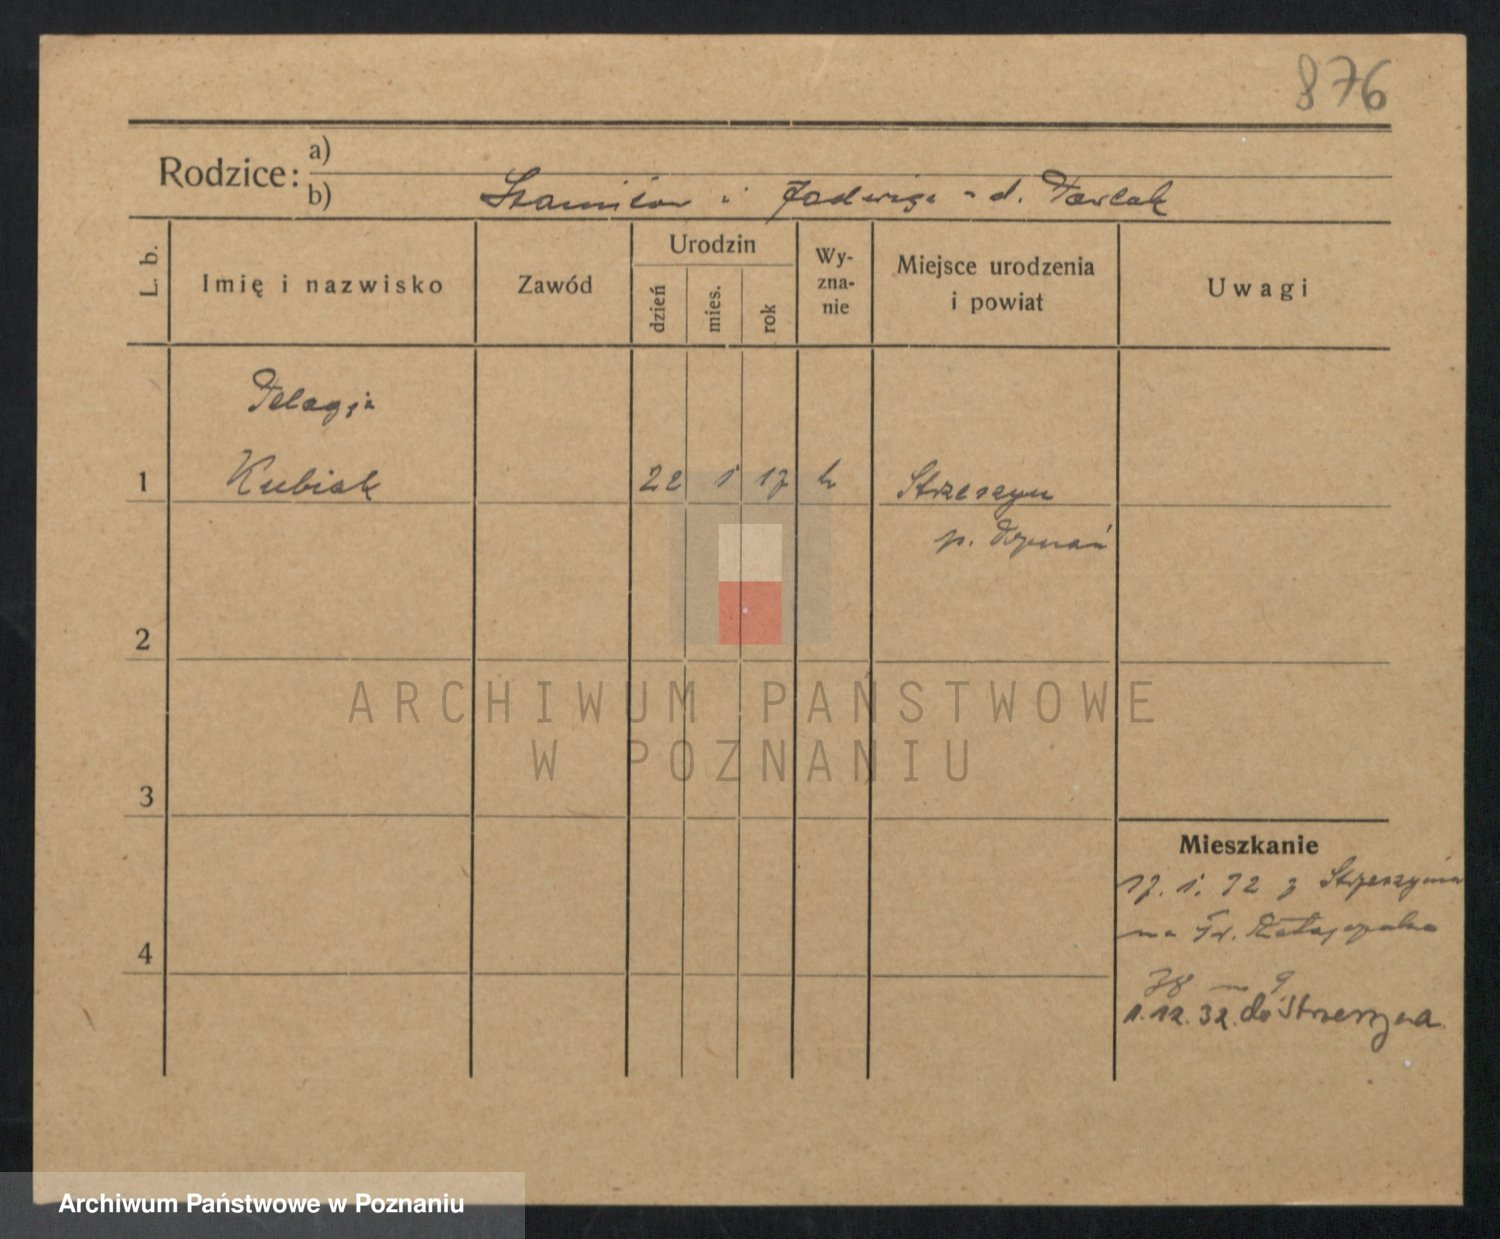 876
Rodzice: a)
b) Stanisław i Jadwiga z d. Pawlak
L. b.
Imię i nazwisko
Zawód
Urodzin
dzień
mies.
rok
Wy-
zna-
nie
Miejsce urodzenia
i powiat
Uwagi
Pelagja
1 Kubiak 22 1 17 k Strzeszyn
p. Poznań
2
3
4
ARCHIWUM PAŃSTWOWE
W POZNANIU
Mieszkanie
17. 1. 32 z Strzeszyna
na Fr. Ratajczaka
38 m 9
1.12.32. do Strzeszyna
Archiwum Państwowe w Poznaniu